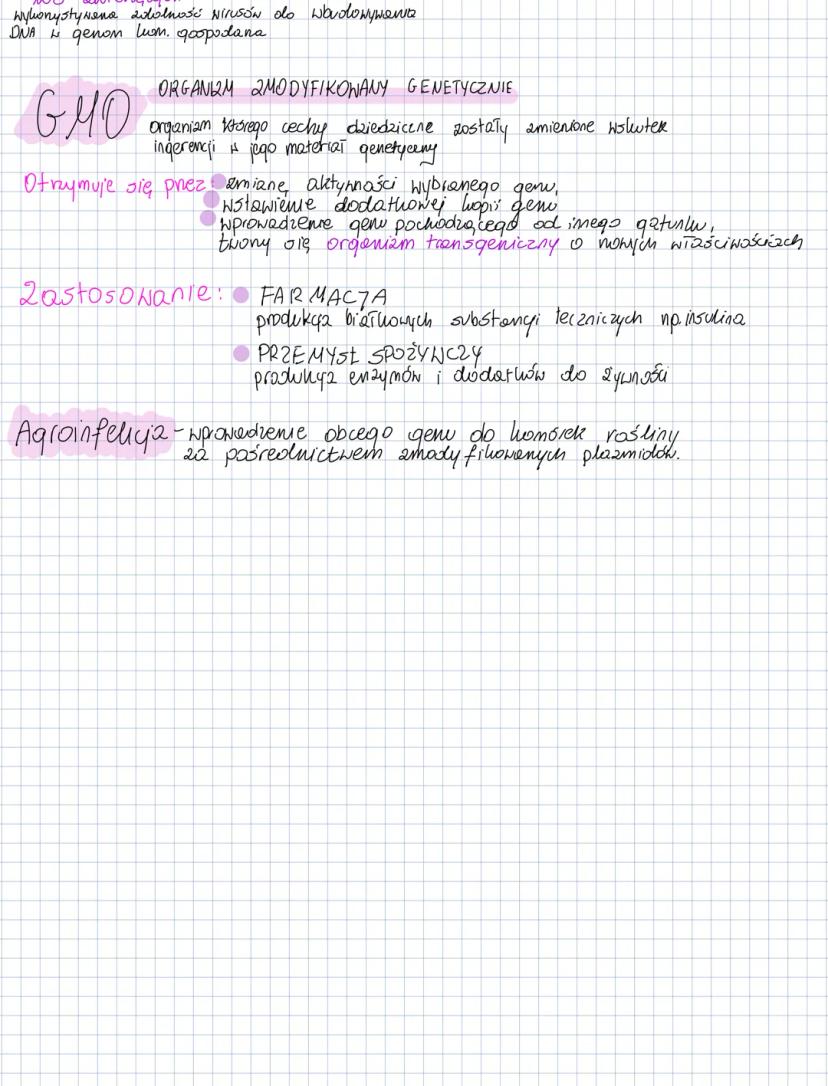 wykorzystywana zdolność wirusów do wbudowywania
DNA w genom kom. gospodarza
GMO
ORGANIZM ZMODYFIKOWANY GENETYCZNIE
organizm którego cechy dziedziczne zostały zmienione wskutek
ingerencji w jego materiał genetyczny
Otrzymuje się przez: zmianę aktywności wybranego genu,
wstawienie dodatkowej kopii genu
wprowadzenie genu pochodzącego od innego gatunku,
tworzy się organizm transgeniczny o nowych właściwościach
Zastosowanie: FARMACJA
produkcja białkowych substancji leczniczych np. insulina
PRZEMYSŁ SPOŻYWCZY
produkcja enzymów i dodatków do żywności
Agroinfekcja - wprowadzenie obcego genu do komórek rośliny
za pośrednictwem zmodyfikowanych plazmidów.